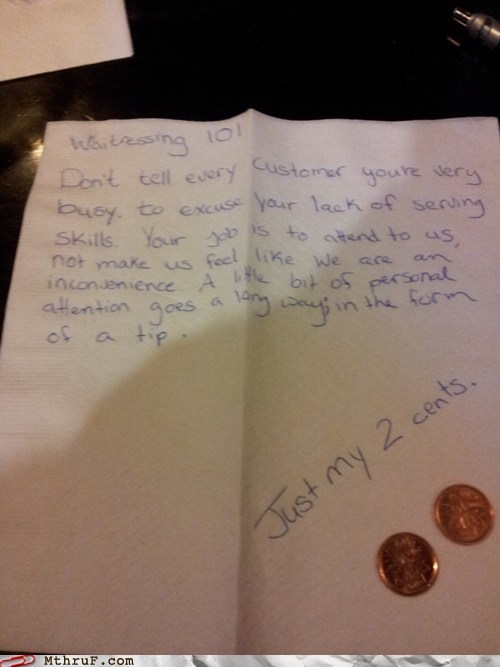 Waitressing 101
Don't tell every customer you're very
busy. to excuse your lack of serving
skills. Your job is to attend to us,
not make us feel like we are an
inconvenience. A little bit of personal
attention goes a long way; in the form
of a tip.
Just my 2 cents.
MthruF.com